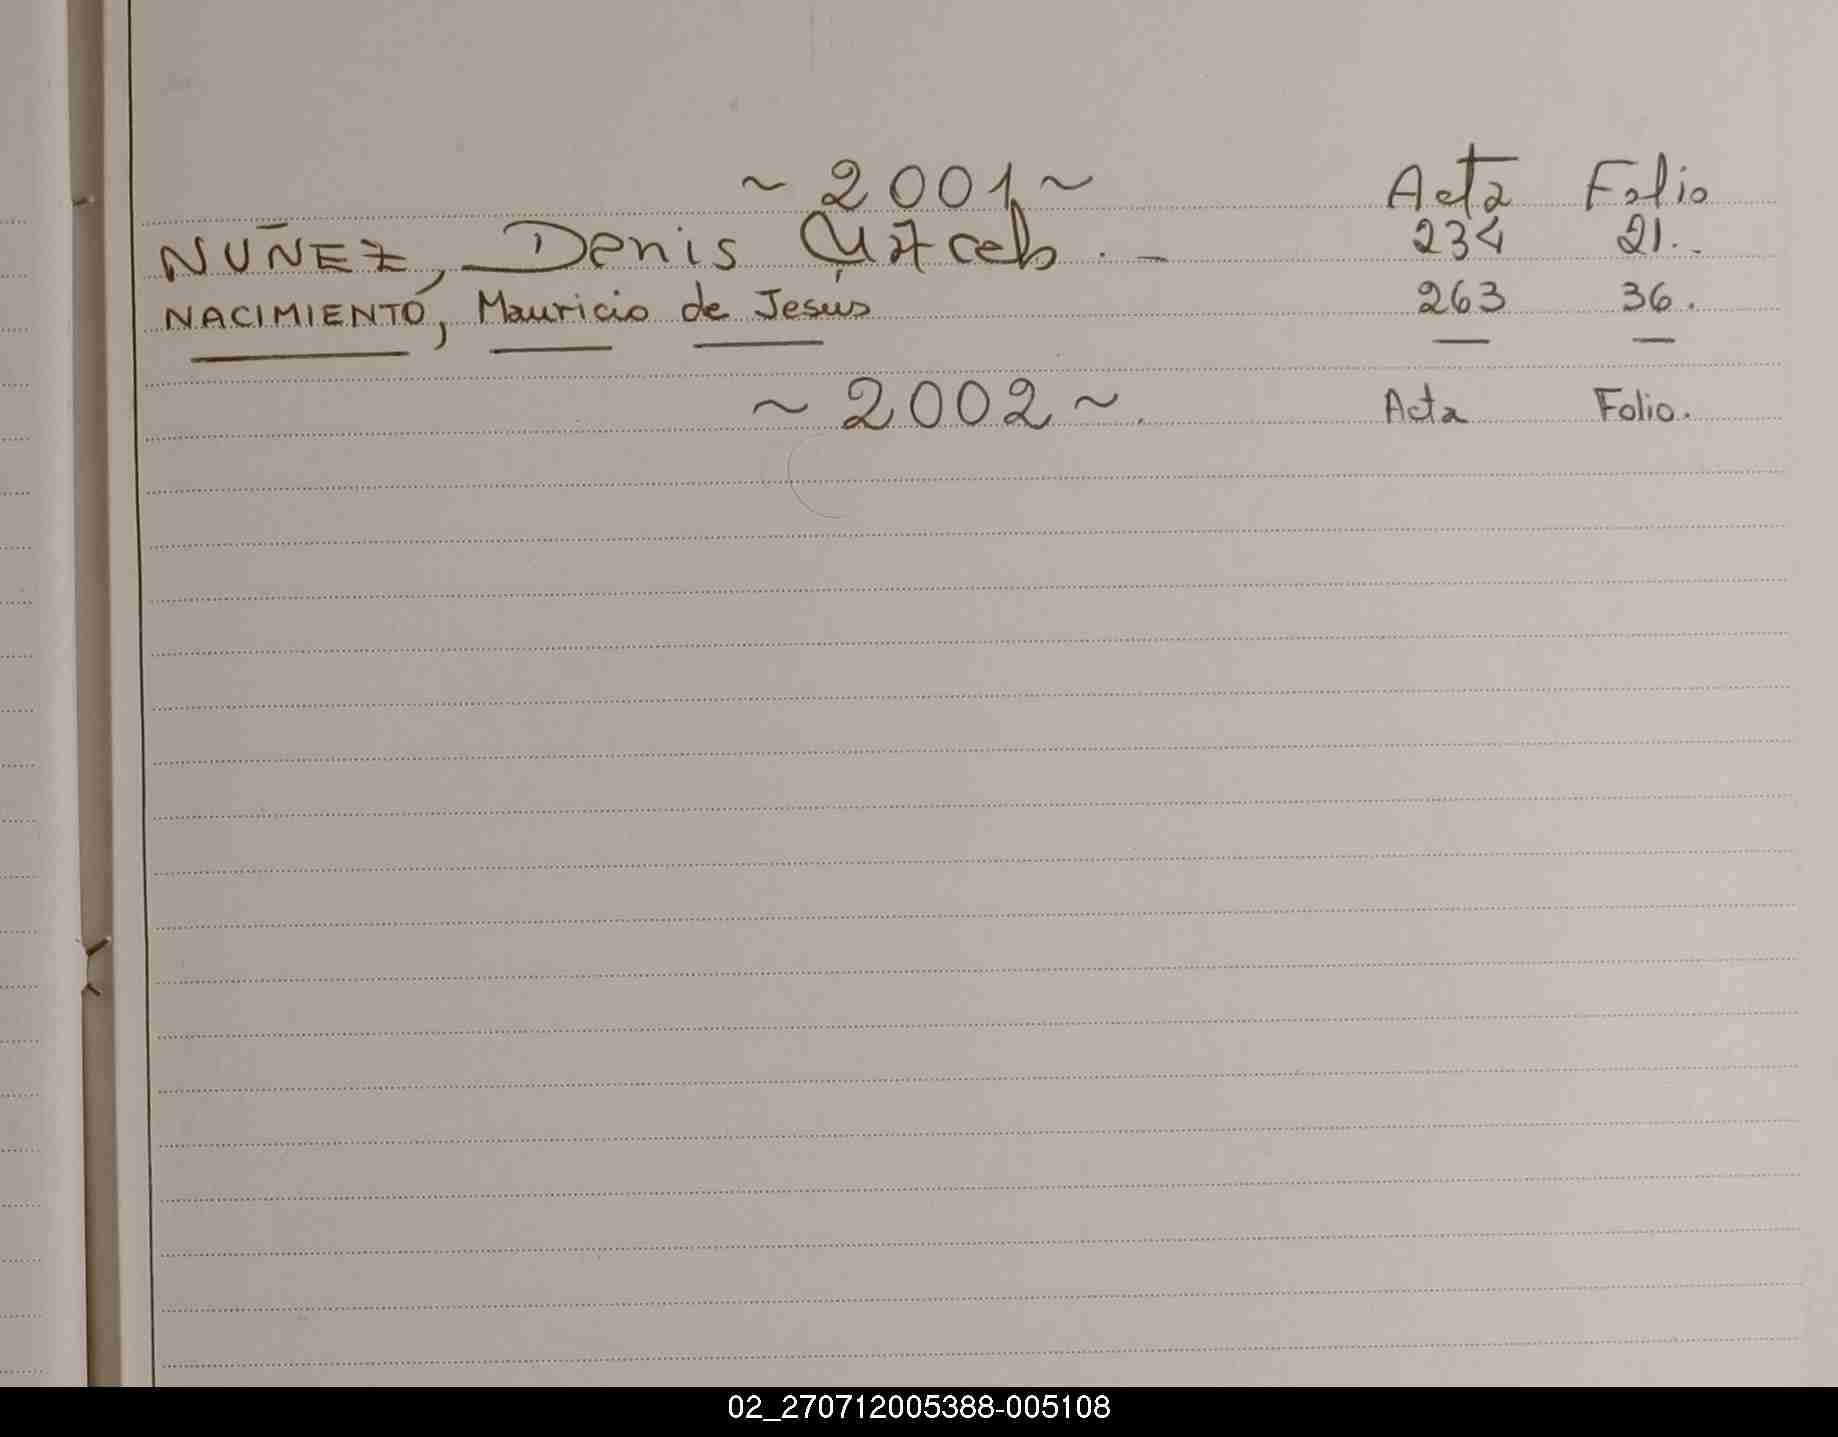 ~ 2001 ~ Acta Folio
NUÑEZ, Denis Marcelo . - 234 21..
NACIMIENTO, Mauricio de Jesús 263 36.
~ 2002 ~. Acta Folio.
02_270712005388-005108